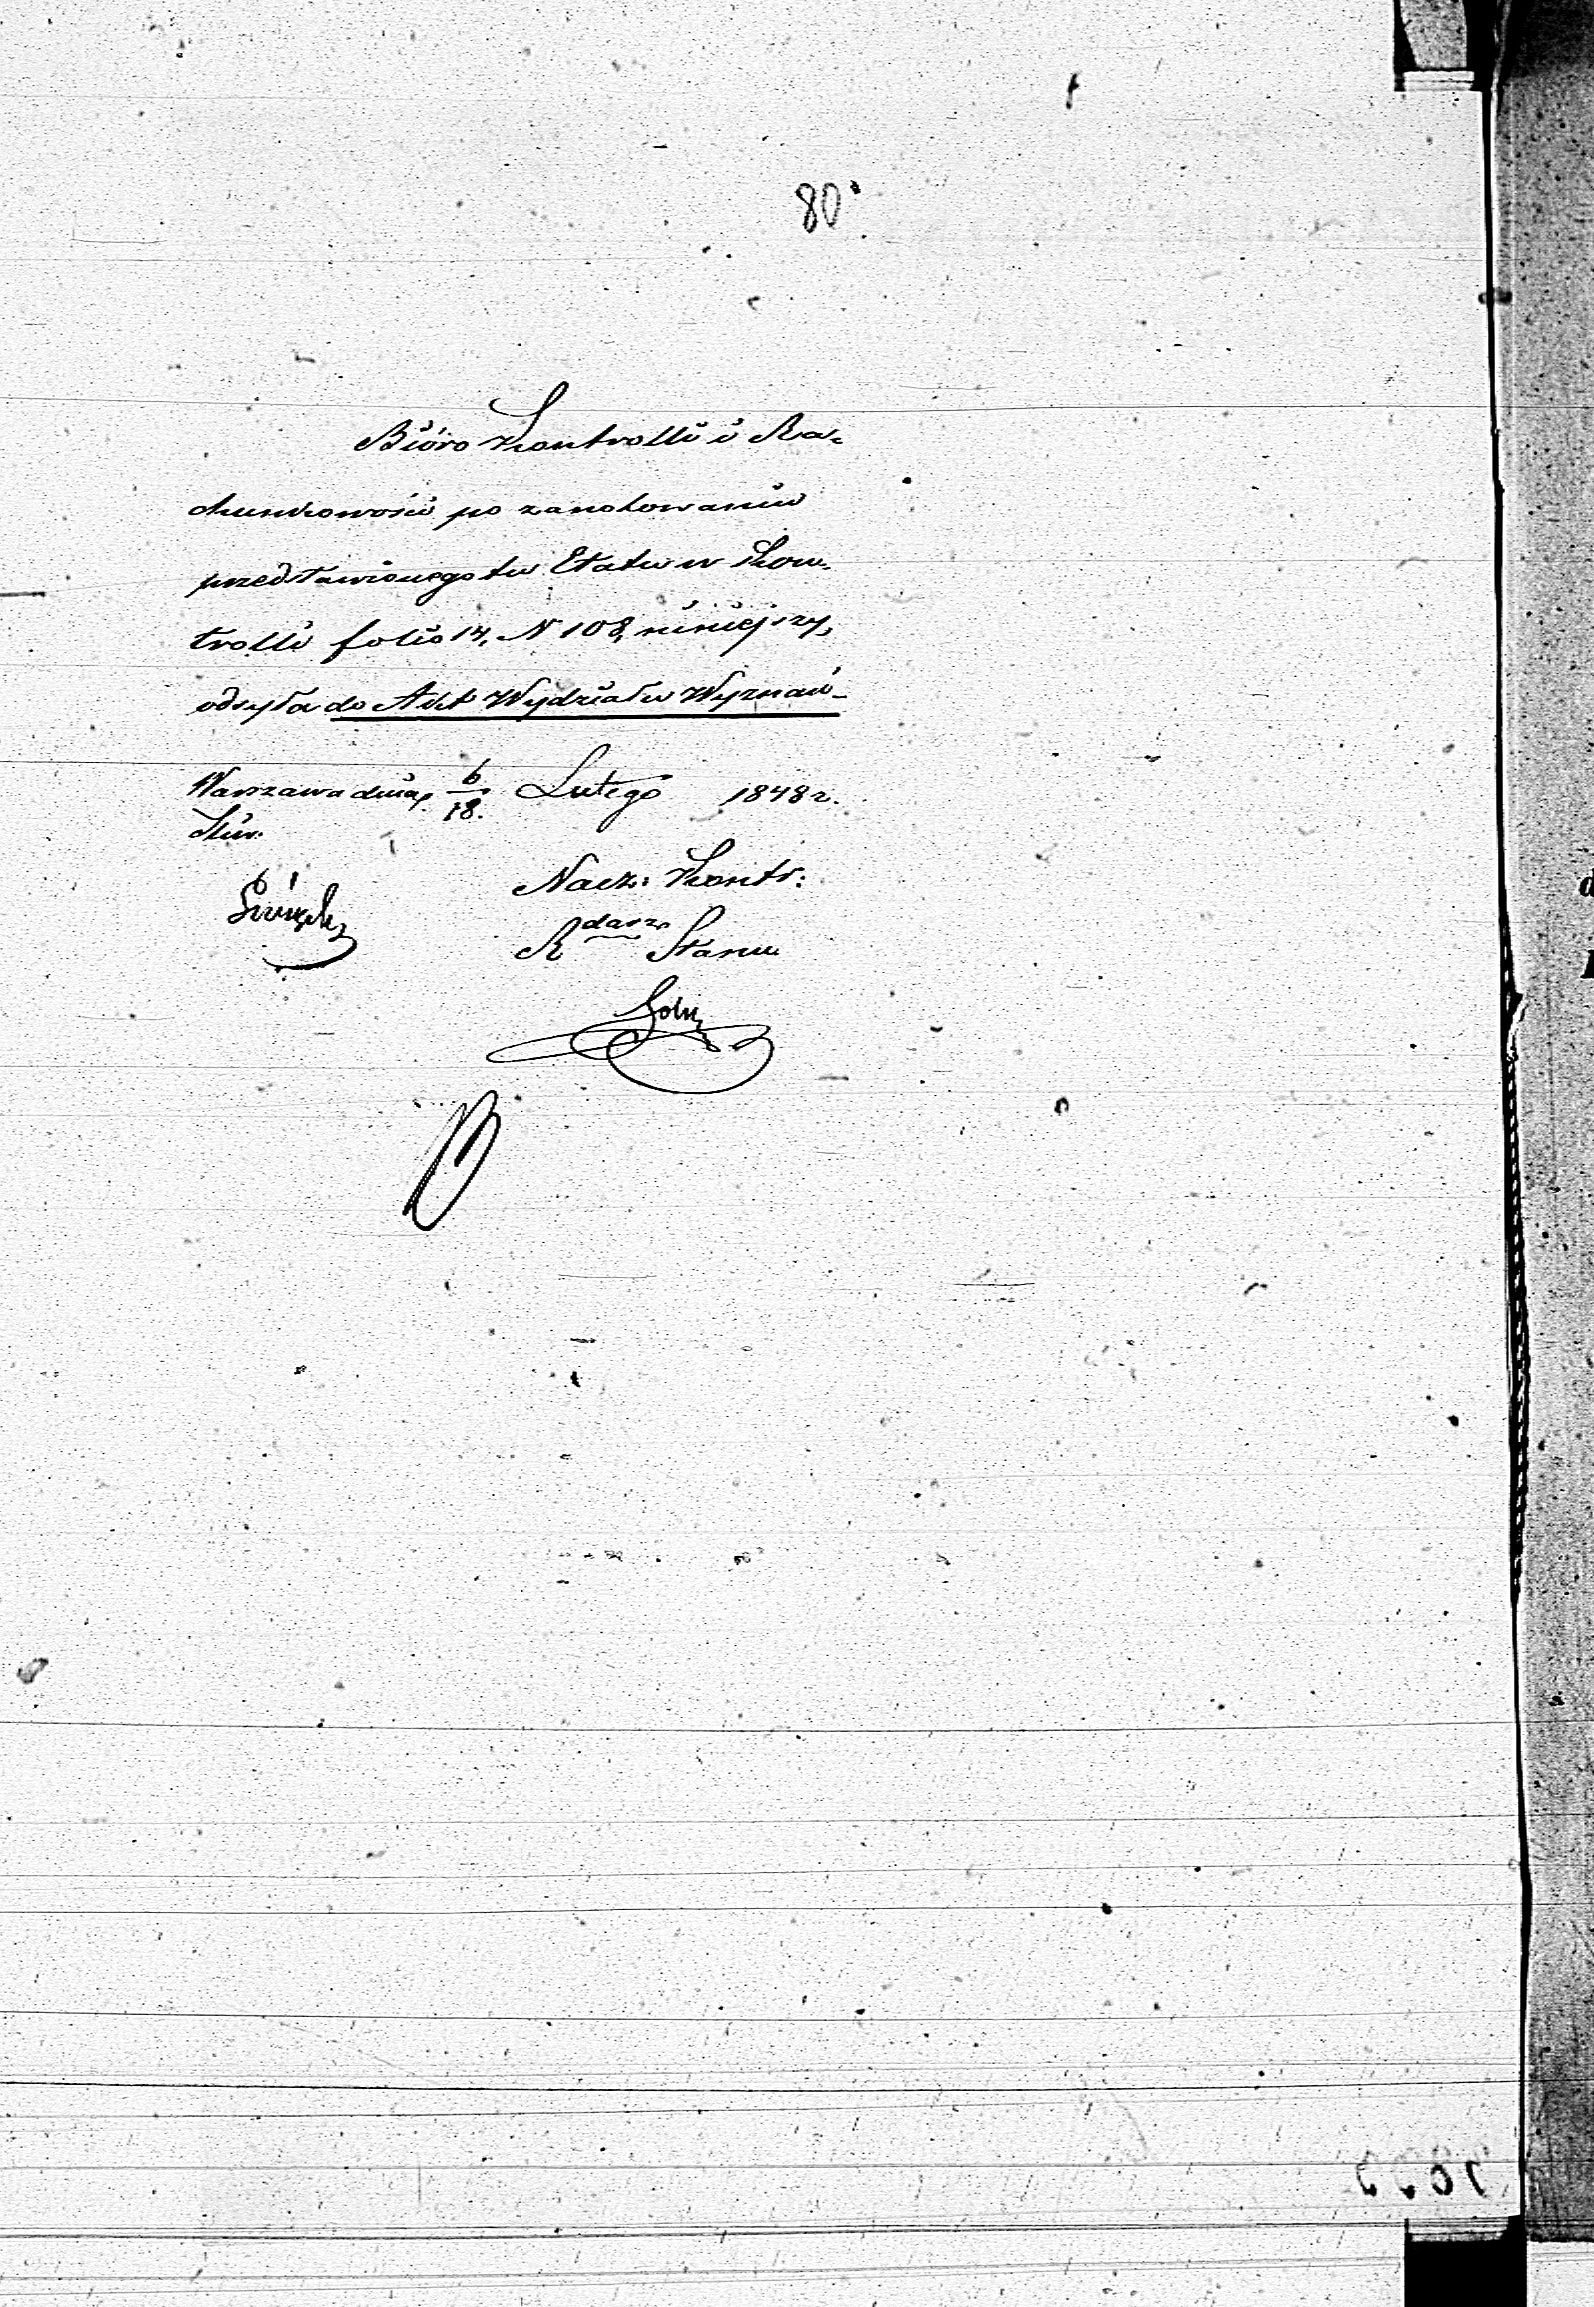 80
Bióro Kontrolli i Ra-
chunkowości po zanotowaniu
przedstawionego tu Etatu w Kon-
trolli folio 14, N 108, niniejszy,
odsyła do Akt Wydziału Wyznań-
Warszawa dnia 6/18. Lutego 1848 r.
Nacz: Kontr:
R darz Stanu